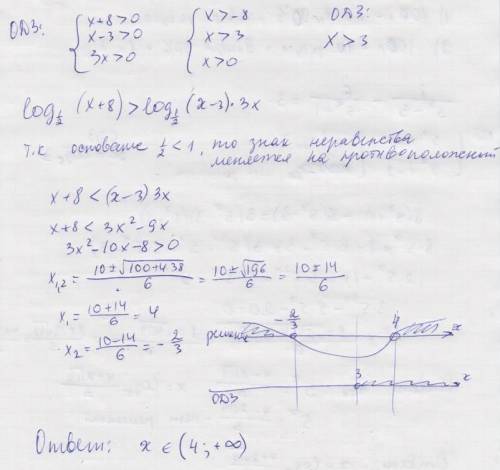 ОДЗ: { x+8>0 { x>-8 ОДЗ:
x-3>0 x>3 x>3
3x>0 x>0
log_{1/2} (x+8) > log_{1/2} (x-3)·3x
т.к основание 1/2 < 1, то знак неравенства
меняется на противоположный
x+8 < (x-3) 3x
x+8 < 3x²-9x
3x²-10x-8>0
x_{1,2} = (10±√(100+4·3·8))/6 = (10±√196)/6 = (10±14)/6
x₁ = (10+14)/6 = 4
x₂ = (10-14)/6 = -2/3
-2/3 4
решение x
3 x
ОДЗ
Ответ: x ∈ (4; +∞)